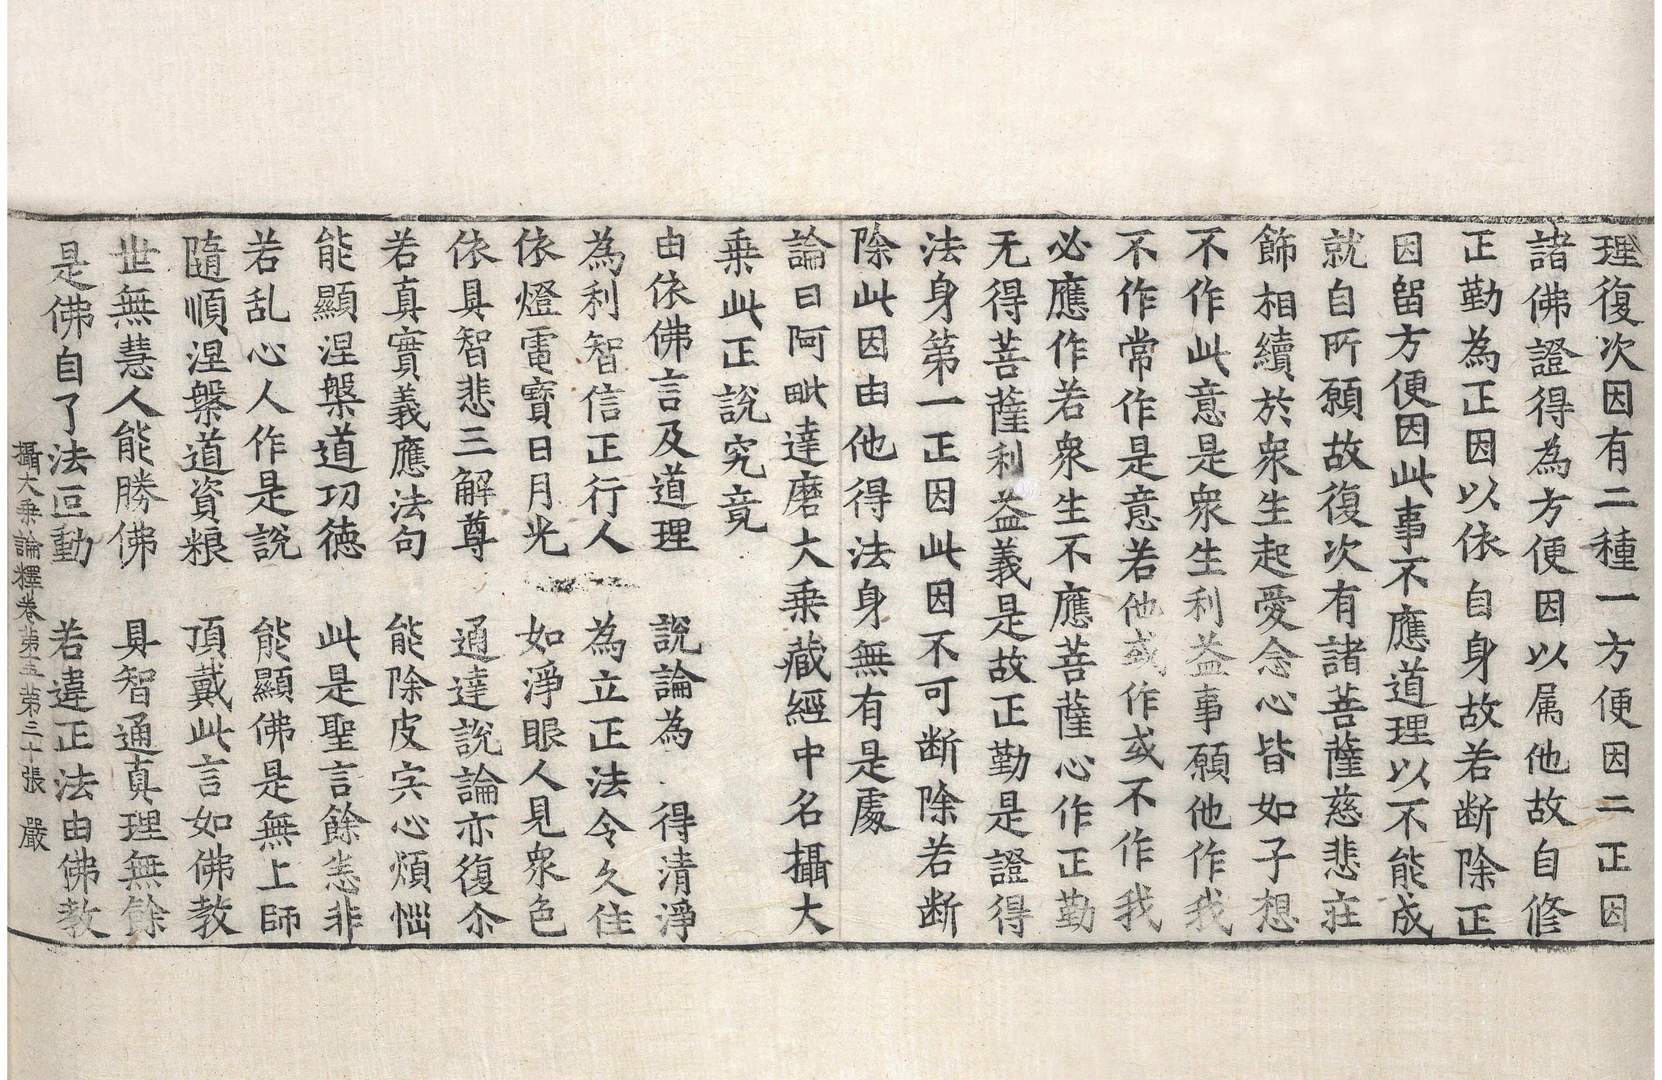 理復次因有二種一方便因二正因
諸佛證得為方便因以属他故自修
正勤為正因以依自身故若断除正
因留方便因此事不應道理以不能成
就自所願故復次有諸菩薩慈悲莊
飾相續於衆生起愛念心皆如子想
不作此意是衆生利益事願他作我
不作常作是意若他或作或不作我
必應作若衆生不應菩薩心作正勤
无得菩薩利益義是故正勤是證得
法身第一正因此因不可断除若断
除此因由他得法身無有是處
論曰阿毗達磨大乗藏經中名攝大
乗此正說究竟
由依佛言及道理　說論為　得清淨
為利智信正行人　為立正法令久住
依燈電寳日月光　如淨眼人見衆色
依具智悲三解尊　通達說論亦復尒
若真實義應法句　能除皮宍心煩惱
能顯涅槃道功徳　此是聖言餘悉非
若乱心人作是說　能顯佛是無上師
隨順涅槃道資粮　頂戴此言如佛教
世無慧人能勝佛　具智通真理無餘
是佛自了法叵動　若違正法由佛教
攝大乗論釋卷第十五　第三十張　嚴